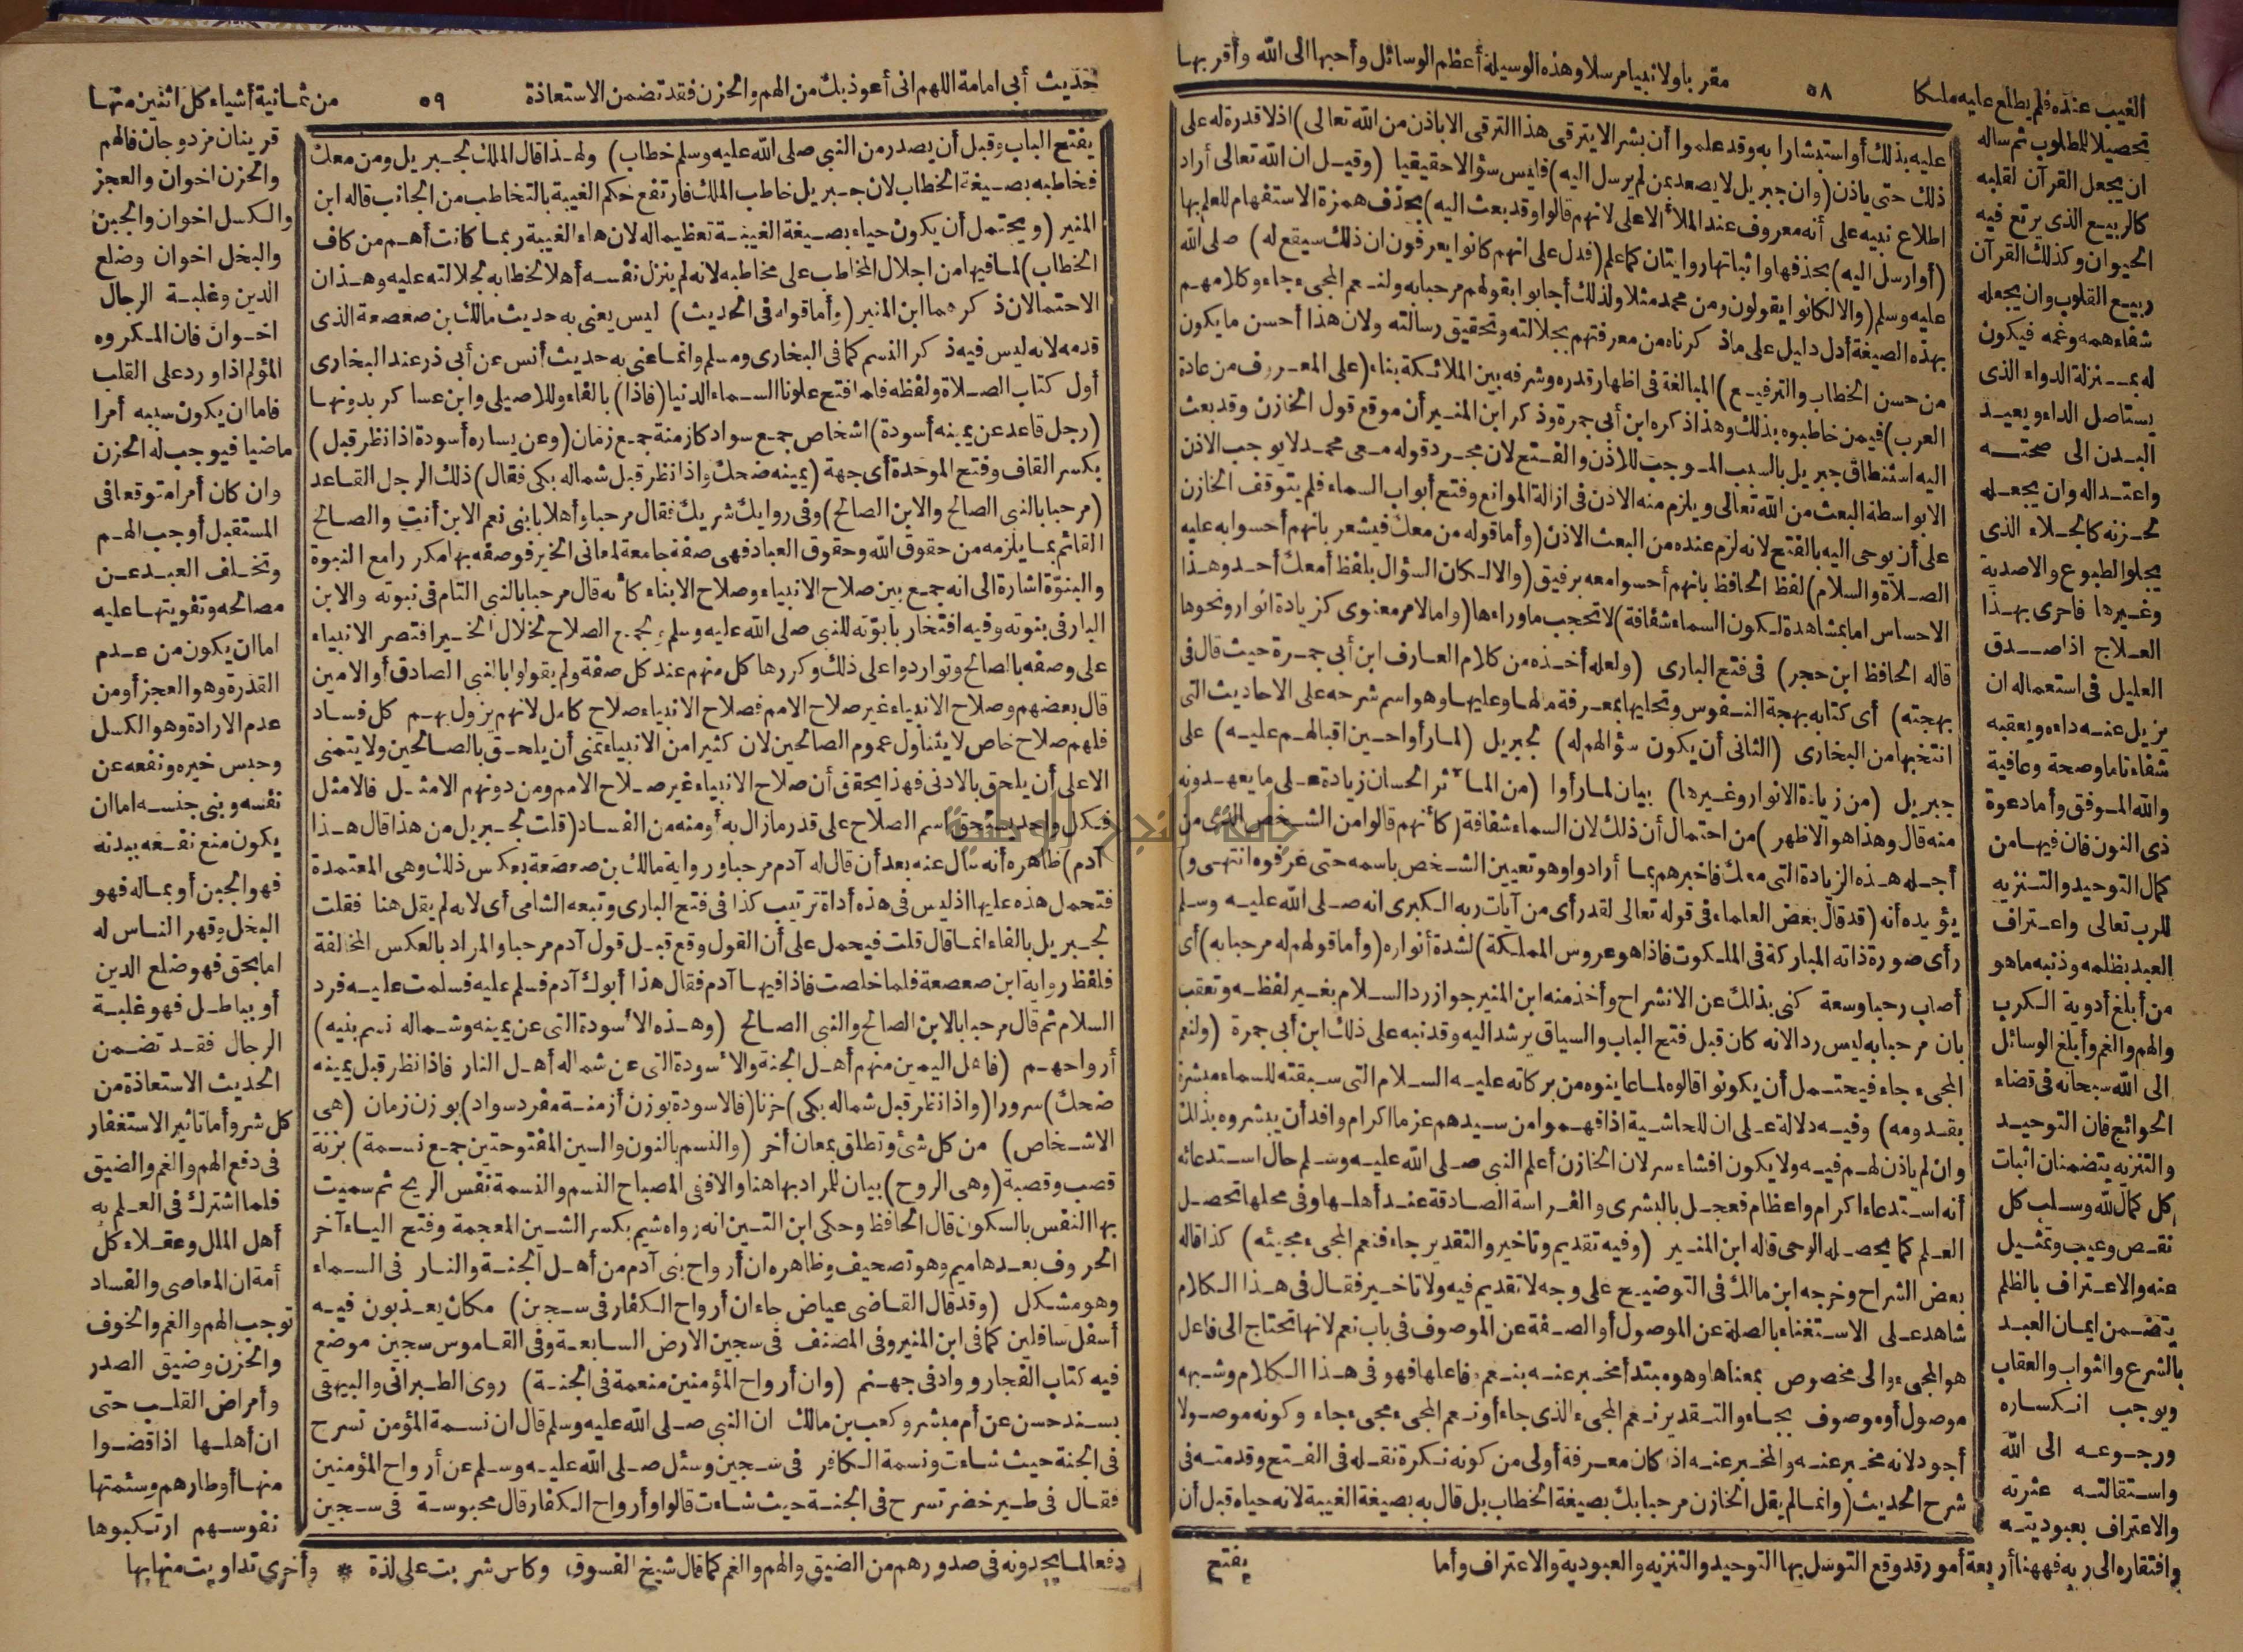 الغيب عنده فلم يطلع عليه ملكا ٥٨ مقربا ولا نبيا مرسلا وهذه الوسيلة أعظم الوسائل وأحبها الى الله وأقربها
تحصيلا للمطلوب ثم ساله
ان يجعل القرآن لقلبه
كالربيع الذى يرتع فيه
الحيوان وكذلك القرآن
ربيع القلوب وان يجعله
شفاء همه وغمه فيكون
له بمنزلة الدواء الذى
يستاصل الداء ويعيد
البدن الى صحته
واعتداله وان يجعله
لحزنه كالجلاء الذى
يجلو الطبوع والاصدية
وغيرها فاحرى بهذا
العلاج اذا صدق
العليل فى استعماله ان
يزيل عنه داءه ويعقبه
شفاء تاما وصحة وعافية
والله الموفق وأما دعوة
ذى النون فان فيها من
كمال التوحيد والتنزيه
للرب تعالى واعتراف
العبد بظلمه وذنبه ما هو
من أبلغ أدوية الكرب
والهم والغم وأبلغ الوسائل
الى الله سبحانه فى قضاء
الحوائج فان التوحيد
والتنزيه يتضمنان اثبات
كل كمال لله وسلب كل
نقص وعيب وتمثيل
عنه والاعتراف بالظلم
يتضمن ايمان العبد
بالشرع والثواب والعقاب
ويوجب انكساره
ورجوعه الى الله
واستقالته عثرته
والاعتراف بعبوديته
وافتقاره الى ربه فههنا أربعة أمور قد وقع التوسل بها التوحيد والتنزيه والعبودية والاعتراف وأما
عليه بذلك أو استبشارا به وقد علموا أن بشر الا يترقى هذا الترقى الا باذن من الله تعالى) اذ لا قدرة له على
ذلك حتى ياذن (وان جبريل لا يصعد بمن لم يرسل اليه) فليس سؤالا حقيقيا (وقيل ان الله تعالى أراد
اطلاع نبيه على أنه معروف عند الملأ الاعلى لانهم قالوا وقد بعث اليه) بحذف همزة الاستفهام للعلم بها
(أوارسل اليه) بحذفها واثباتها روايتان كما علم (فدل على انهم كانوا يعرفون ان ذلك سيقع له) صلى الله
عليه وسلم (والا لكانوا يقولون ومن محمد مثلا ولذلك أجابوا بقولهم مرحبا به ولنعم المجىء جاء وكلامهم
بهذه الصيغة أدل دليل على ما ذكرناه من معرفتهم بجلالته وتحقيق رسالته ولان هذا أحسن ما يكون
من حسن الخطاب والترفيع) المبالغة فى اظهار قدره وشرفه بين الملائكة بناء (على المعروف من عادة
العرب) فيمن خاطبوه بذلك وهذا ذكره ابن أبى جمرة وذكر ابن المنير أن موقع قول الخازن وقد بعث
اليه استنطاق جبريل بالسبب الموجب للاذن والفتح لان مجرد قوله معى محمد لا يوجب الاذن
الا بواسطة البعث من الله تعالى ويلزم منه الاذن فى ازالة الموانع وفتح أبواب السماء فلم يتوقف الخازن
على أن يوحى اليه بالفتح لانه لزم عنده من البعث الاذن (وأما قوله من معك فيشعر بانهم أحسوا به عليه
الصلاة والسلام) لفظ الحافظ بانهم أحسوا معه برفيق (والا لكان السؤال بلفظ أمعك أحد وهذا
الاحساس اما بمشاهدة لكون السماء شفافة) لا تحجب ما وراءها (واما لامر معنوى كزيادة انوار ونحوها
قاله الحافظ ابن حجر) فى فتح البارى (ولعله أخذه من كلام العارف ابن أبى جمرة حيث قال فى
بهجته) أى كتابه بهجة النفوس وتحليها بمعرفة ما لها وعليها وهو اسم شرحه على الاحاديث التى
انتخبها من البخارى (الثانى أن يكون سؤالهم له) لجبريل (لما رأوا حين اقبالهم عليه) على
جبريل (من زيادة الانوار وغيرها) بيان لما رأوا (من المآثر الحسان زيادة على ما يعهدونه
منه قال وهذا هو الاظهر) من احتمال أن ذلك لان السماء شفافة (كأنهم قالوا من الشخص الذى من
أجله هذه الزيادة التى معك فاخبرهم بما أرادوا وهو تعيين الشخص باسمه حتى عرفوه انتهى و)
يؤيده أنه (قد قال بعض العلماء فى قوله تعالى لقد رأى من آيات ربه الكبرى انه صلى الله عليه وسلم
رأى صورة ذاته المباركة فى الملكوت فاذا هو عروس المملكة) لشدة أنواره (وأما قولهم له مرحبا به) أى
أصاب رحبا وسعة كنى بذلك عن الانشراح وأخذ منه ابن المنير جواز رد السلام بغير لفظه وتعقب
بان مرحبا به ليس رد الانه كان قبل فتح الباب والسياق يرشد اليه وقد نبه على ذلك ابن أبى جمرة (ولنعم
المجىء جاء فيحتمل أن يكونوا قالوه لما عاينوه من بركاته عليه السلام التى سبقته للسماء مبشرة
بقدومه) وفيه دلالة على ان للحاشية اذا فهموا من سيدهم عزما اكرام وافد أن يبشروه بذلك
وان لم ياذن لهم فيه ولا يكون افشاء سر لان الخازن أعلم النبى صلى الله عليه وسلم حال استدعائه
أنه استدعاء اكرام واعظام فعجل بالبشرى والفراسة الصادقة عند أهلها وفى محلها تحصل
العلم كما يحصله الوحى قاله ابن المنير (وفيه تقديم وتاخير والتقدير جاء فنعم المجىء مجيئه) كذا قاله
بعض الشراح وخرجه ابن مالك فى التوضيح على وجه لا تقديم فيه ولا تاخير فقال فى هذا الكلام
شاهد على الاستغناء بالصلة عن الموصول أو الصفة عن الموصوف فى باب نعم لانها تحتاج الى فاعل
هو المجىء والى مخصوص بمعناها وهو مبتدأ مخبر عنه بنعم وفاعلها فهو فى هذا الكلام وشبهه
موصول أو موصوف بجاء والتقدير نعم المجىء الذى جاء أو نعم المجىء مجىء جاء وكونه موصولا
أجود لانه مخبر عنه والمخبر عنه اذا كان معرفة أولى من كونه نكرة نقله فى الفتح وقدمته فى
شرح الحديث (وانما لم يقل الخازن مرحبا بك بصيغة الخطاب بل قال به بصيغة الغيبة لانه حياه قبل أن
يفتح
حديث أبى امامة اللهم انى أعوذ بك من الهم والحزن فقد تضمن الاستعاذة ٥٩ من ثمانية أشياء كل اثنين منها
يفتح الباب وقبل أن يصدر من النبى صلى الله عليه وسلم خطاب) ولهذا قال الملك لجبريل ومن معك
فخاطبه بصيغة الخطاب لان جبريل خاطب الملك فارتفع حكم الغيبة بالتخاطب من الجانب قاله ابن
المنير (ويحتمل أن يكون حياه بصيغة الغيبة تعظيما له لان هاء الغيبة ربما كانت أهم من كاف
الخطاب) لما فيها من اجلال المخاطب على مخاطبه لانه لم ينزل نفسه أهلا لخطابه لجلالته عليه وهذان
الاحتمالان ذكرهما ابن المنير (وأما قوله فى الحديث) ليس يعنى به حديث مالك بن صعصعة الذى
قدمه لانه ليس فيه ذكر النسم كما فى البخارى ومسلم وانما عنى به حديث أنس عن أبى ذر عند البخارى
أول كتاب الصلاة ولفظه فلما فتح علونا السماء الدنيا (فاذا) بالفاء وللاصيلى وابن عساكر بدونها
(رجل قاعد عن يمينه أسودة) اشخاص جمع سواد كازمنة جمع زمان (وعن يساره أسودة اذا نظر قبل)
بكسر القاف وفتح الموحدة أى جهة (يمينه ضحك واذا نظر قبل شماله بكى فقال) ذلك الرجل القاعد
(مرحبا بالنبى الصالح والابن الصالح) وفى رواية شريك فقال مرحبا وأهلا بابنى نعم الابن أنت والصالح
القائم بما يلزمه من حقوق الله وحقوق العباد فهى صفة جامعة لمعانى الخير فوصفه بها مكررا مع النبوة
والبنوّة اشارة الى انه جمع بين صلاح الانبياء وصلاح الابناء كأنه قال مرحبا بالنبى التام فى نبوته والابن
البار فى بنوته وفيه افتخار بابوّته للنبى صلى الله عليه وسلم ولجمع الصلاح لخلال الخير اقتصر الانبياء
على وصفه بالصالح وتواردوا على ذلك وكررها كل منهم عند كل صفة ولم يقولوا بالنبى الصادق أو الامين
قال بعضهم وصلاح الانبياء غير صلاح الامم فصلاح الانبياء صلاح كامل لانهم يزول بهم كل فساد
فلهم صلاح خاص لا يتناول عموم الصالحين لان كثيرا من الانبياء تمنى أن يلحق بالصالحين ولا يتمنى
الاعلى أن يلحق بالادنى فهذا يحقق أن صلاح الانبياء غير صلاح الامم ومن دونهم الامثل فالامثل
فكل واحد يستحق اسم الصلاح على قدر ما زال به أو منه من الفساد (قلت لجبريل من هذا قال هذا
آدم) ظاهره أنه سأل عنه بعد أن قال له آدم مرحبا ورواية مالك بن صعصعة بعكس ذلك وهى المعتمدة
فتحمل هذه عليها اذ ليس فى هذه أداة ترتيب كذا فى فتح البارى وتبعه الشامى أى لانه لم يقل هنا فقلت
لجبريل بالفاء انما قال قلت فيحمل على أن القول وقع قبل قول آدم مرحبا والمراد بالعكس المخالفة
فلفظ رواية ابن صعصعة فلما خلصت فاذا فيها آدم فقال هذا أبوك آدم فسلم عليه فسلمت عليه فرد
السلام ثم قال مرحبا بالابن الصالح والنبى الصالح (وهذه الأسودة التى عن يمينه وشماله نسم بنيه)
أرواحهم (فاهل اليمين منهم أهل الجنة والأسودة التى عن شماله أهل النار فاذا نظر قبل يمينه
ضحك) سرورا (واذا نظر قبل شماله بكى) حزنا (فالاسودة بوزن أزمنة مفرد سواد) بوزن زمان (هى
الاشخاص) من كل شئ وتطلق بمعان أخر (والنسم بالنون والسين المفتوحتين جمع نسمة) بزنة
قصب وقصبة (وهى الروح) بيان للمراد بها هنا والا ففى المصباح النسم والنسمة نفس الريح ثم سميت
بها النفس بالسكون قال الحافظ وحكى ابن التين انه رواه شيم بكسر الشين المعجمة وفتح الياء آخر
الحروف بعدها ميم وهو تصحيف وظاهره ان أرواح بنى آدم من أهل الجنة والنار فى السماء
وهو مشكل (وقد قال القاضى عياض جاء ان أرواح الكفار فى سجين) مكان يعذبون فيه
أسفل سافلين كما فى ابن المنير وفى المصنف فى سجين الارض السابعة وفى القاموس سجين موضع
فيه كتاب الفجار وواد فى جهنم (وان أرواح المؤمنين منعمة فى الجنة) روى الطبرانى والبيهقى
بسند حسن عن أم مبشر وكعب بن مالك ان النبى صلى الله عليه وسلم قال ان نسمة المؤمن تسرح
فى الجنة حيث شاءت ونسمة الكافر فى سجين وسئل صلى الله عليه وسلم عن أرواح المؤمنين
فقال فى طير خضر تسرح فى الجنة حيث شاءت قالوا وأرواح الكفار قال محبوسة فى سجين
قرينان مزدوجان فالهم
والحزن اخوان والعجز
والكسل اخوان والجبن
والبخل اخوان وضلع
الدين وغلبة الرجال
اخوان فان المكروه
المؤلم اذا ورد على القلب
فاما ان يكون سببه أمرا
ماضيا فيوجب له الحزن
وان كان أمرا متوقعا فى
المستقبل أوجب الهم
وتخلف العبد عن
مصالحه وتفويتها عليه
اما ان يكون من عدم
القدرة وهو العجز أو من
عدم الارادة وهو الكسل
وحبس خيره ونفعه عن
نفسه وبنى جنسه اما ان
يكون منع نفعه ببدنه
فهو الجبن أو بماله فهو
البخل وقهر الناس له
اما بحق فهو ضلع الدين
أو بباطل فهو غلبة
الرجال فقد تضمن
الحديث الاستعاذة من
كل شر وأما تاثير الاستغفار
فى دفع الهم والغم والضيق
فلما اشترك فى العلم به
أهل الملل وعقلاء كل
أمة ان المعاصى والفساد
توجب الهم والغم والخوف
والحزن وضيق الصدر
وأمراض القلب حتى
ان أهلها اذا قضوا
منها أوطارهم وسئمتها
نفوسهم ارتكبوها
دفعا لما يجدونه فى صدورهم من الضيق والهم والغم كما قال شيخ الفسوق وكاس شربت على لذة * وأخرى تداويت منها بها
جامعة النجاح الوطنية